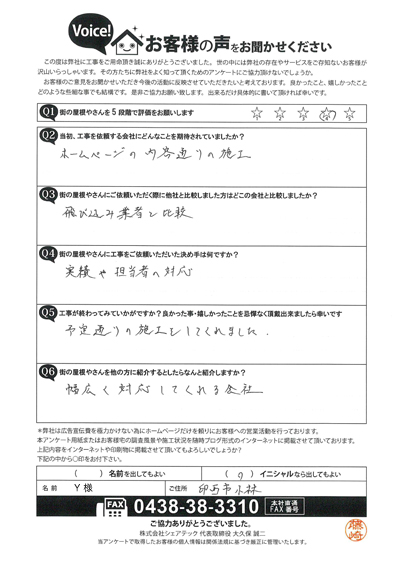 Voice!
お客様の声をお聞かせください
この度は弊社に工事をご用命頂き誠にありがとうございました。世の中には弊社の存在やサービスをご存知ないお客様が
沢山いらっしゃいます。その方たちに弊社をよく知って頂くためのアンケートにご協力頂けないでしょうか。
お客様のご意見をお聞かせいただき今後の活動に反映させていただきたいと考えております。良かったこと、嬉しかったこと
どのような些細な事でも結構です。是非ご協力お願い致します。出来るだけ具体的に書いて頂ければ幸いです。
Q1 街の屋根やさんを5段階で評価をお願いします ☆ ☆ ☆ ☆ ☆
Q2 当初、工事を依頼する会社にどんなことを期待されていましたか?
ホームページの内容通りの施工
Q3 街の屋根やさんにご依頼いただく際に他社と比較しました方はどこの会社と比較しましたか?
飛び込み業者と比較
Q4 街の屋根やさんに工事をご依頼いただいた決め手は何ですか?
実績や担当者の対応
Q5 工事が終わってみていかがですか?良かった事・嬉しかったことを忌憚なく頂戴出来ましたら幸いです
予定通りの施工をしてくれました.
Q6 街の屋根やさんを他の方に紹介するとしたらなんと紹介しますか?
幅広く対応してくれる会社
*弊社は広告宣伝費を極力かけない為にホームページだけを頼りにお客様への営業活動を行っております。
本アンケート用紙またはお客様宅の調査風景や施工状況を随時ブログ形式のインターネットに掲載させて頂いております。
上記内容をインターネットや印刷物に掲載させて頂いてもよろしいでしょうか?
下記の中から○印をお付下さい。
( ) 名前を出してもよい ( ○ ) イニシャルなら出してもよい
名前 Y様 ご住所 印西市小林
FAX 0438-38-3310 本社直通 FAX番号
ご協力ありがとうございました。
株式会社シェアテック 代表取締役 大久保 誠二
当アンケートで取得したお客様の個人情報は関係法規に基づき厳正に管理いたします。